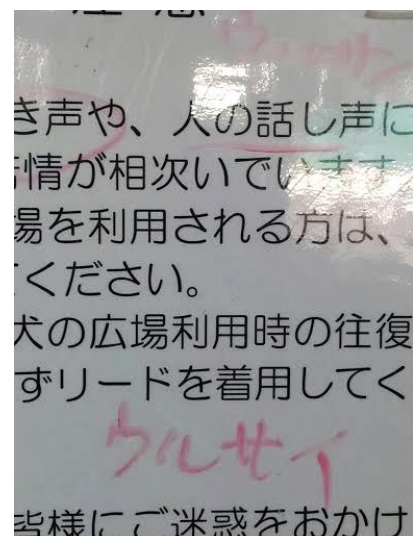 き声や、人の話し声に
苦情が相次いでいます
場を利用される方は、
てください。
犬の広場利用時の往復
ずリードを着用してく
ウルサイ
皆様にご迷惑をおかけ